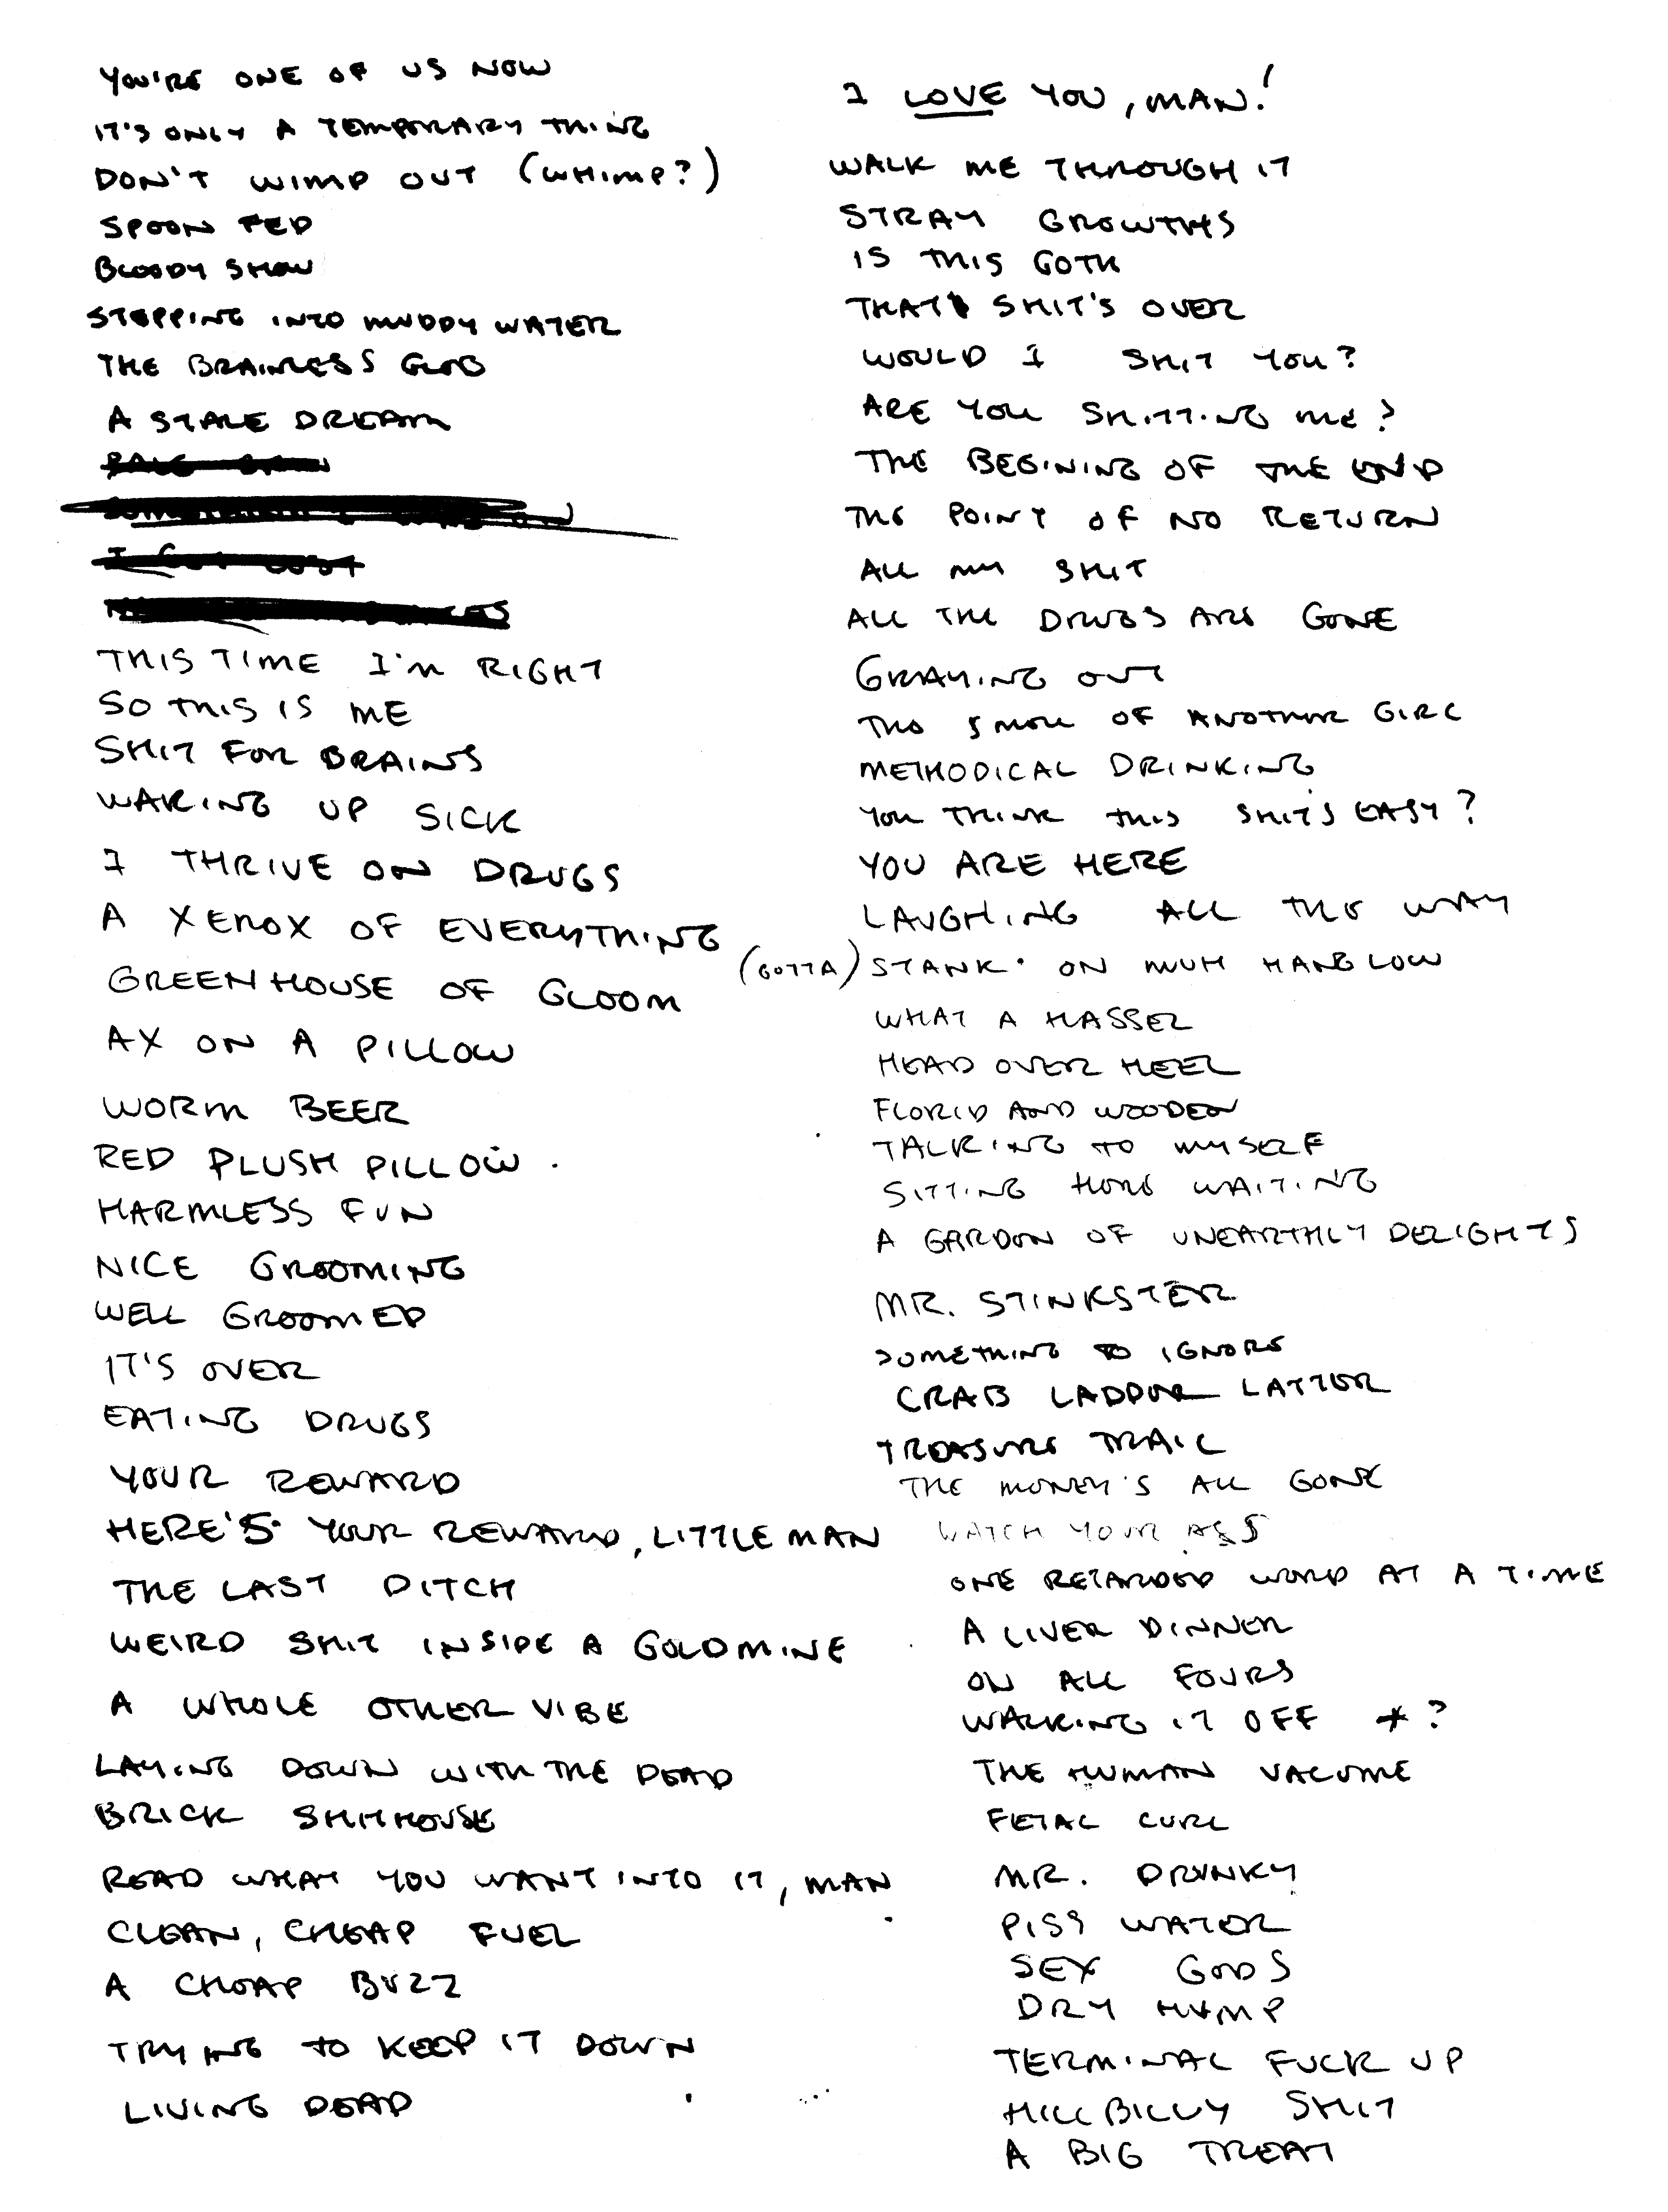 YOU'RE ONE OF US NOW
IT'S ONLY A TEMPORARY THING
DON'T WIMP OUT (WHIMP?)
SPOON FED
BLOODY SHOW
STEPPING INTO MUDDY WATER
THE BRAINLESS GLOB
A STALE DREAM
THIS TIME I'M RIGHT
SO THIS IS ME
SHIT FOR BRAINS
WAKING UP SICK
I THRIVE ON DRUGS
A XEROX OF EVERYTHING
GREENHOUSE OF GLOOM
AX ON A PILLOW
WORM BEER
RED PLUSH PILLOW.
HARMLESS FUN
NICE GROOMING
WELL GROOMED
IT'S OVER
EATING DRUGS
YOUR REWARD
HERE'S YOUR REWARD, LITTLE MAN
THE LAST DITCH
WEIRD SHIT INSIDE A GOLDMINE
A WHOLE OTHER VIBE
LAYING DOWN WITH THE DEAD
BRICK SHITHOUSE
READ WHAT YOU WANT INTO IT, MAN
CLEAN, CHEAP FUEL
A CHEAP BUZZ
TRYING TO KEEP IT DOWN
LIVING DEAD
I LOVE YOU, MAN!
WALK ME THROUGH IT
STRAY GROWTHS
IS THIS GOTH
THAT SHIT'S OVER
WOULD I SHIT YOU?
ARE YOU SHITTING ME?
THE BEGINING OF THE END
THE POINT OF NO RETURN
ALL MY SHIT
ALL THE DRUGS ARE GONE
GRAYING OUT
THE SMELL OF ANOTHER GIRL
METHODICAL DRINKING
YOU THINK THIS SHIT'S EASY?
YOU ARE HERE
LAUGHING ALL THE WAY
(GOTTA) STANK ON MUH HANG LOW
WHAT A HASSEL
HEAD OVER HEEL
FLORID AND WOODEN
TALKING TO MYSELF
SITTING HERE WAITING
A GARDEN OF UNEARTHLY DELIGHTS
MR. STINKSTER
SOMETHING TO IGNORE
CRAB LADDER LATTER
TREASURE TRAIL
THE MONEY'S ALL GONE
WATCH YOUR ASS
ONE RETARDED WORD AT A TIME
A LIVER DINNER
ON ALL FOURS
WALKING IT OFF *?
THE HUMAN VACUME
FETAL CURL
MR. DRUNKY
PISS WATER
SEX GODS
DRY HUMP
TERMINAL FUCK UP
HILLBILLY SHIT
A BIG TREAT